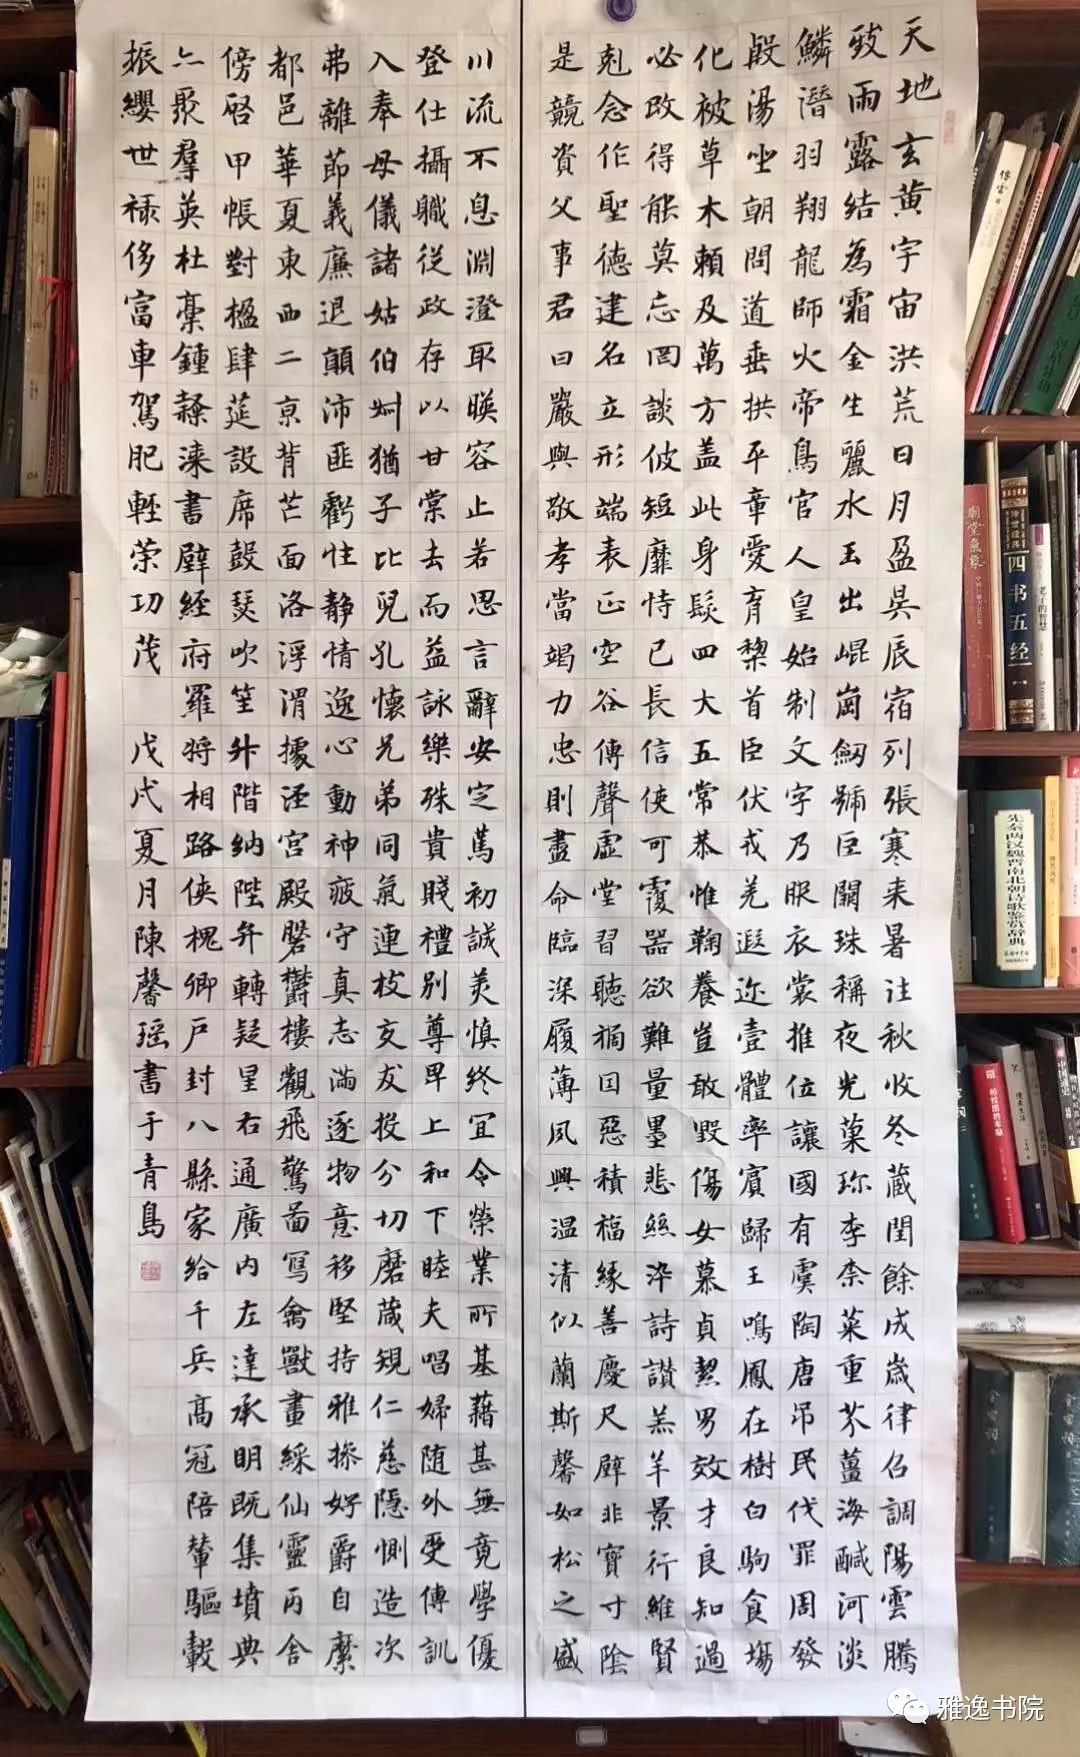 天地玄黄宇宙洪荒日月盈昃辰宿列張寒来暑往秋收冬藏閏餘成歲律召調陽雲騰
致雨露結為霜金生麗水玉出崐崗劒號巨闕珠稱夜光菓珍李柰菜重芥薑海醎河淡
鱗潛羽翔龍師火帝鳥官人皇始制文字乃服衣裳推位讓國有虞陶唐弔民伐罪周發
殷湯坐朝問道垂拱平章愛育黎首臣伏戎羌遐迩壹體率賓歸王鳴鳳在樹白駒食場
化被草木賴及萬方盖此身髮四大五常恭惟鞠養豈敢毀傷女慕貞絜男效才良知過
必改得能莫忘罔談彼短靡恃己長信使可覆器欲難量墨悲絲染詩讃羔羊景行維賢
剋念作聖德建名立形端表正空谷傳聲虛堂習聽禍因惡積福緣善慶尺璧非寶寸陰
是競資父事君曰嚴與敬孝當竭力忠則盡命臨深履薄夙興温清似蘭斯馨如松之盛
川流不息淵澄取暎容止若思言辭安定篤初誠美慎終宜令榮業所基藉甚無竟學優
登仕攝職從政存以甘棠去而益詠樂殊貴賤禮別尊卑上和下睦夫唱婦随外受傅訓
入奉母儀諸姑伯叔猶子比兒孔懷兄弟同氣連枝交友投分切磨箴規仁慈隱惻造次
弗離節義廉退顛沛匪虧性静情逸心動神疲守真志滿逐物意移堅持雅操好爵自縻
都邑華夏東西二京背芒面洛浮渭據涇宮殿磐欝樓觀飛驚啚寫禽獸畫綵仙靈丙舍
傍啓甲帳對楹肆莚設席鼓瑟吹笙升階納陛弁轉疑星右通廣内左達承明既集墳典
亦聚羣英杜稾鍾隸漆書壁經府羅将相路俠槐卿户封八縣家給千兵高冠陪輦驅轂
振纓世禄侈富車駕肥輕策功茂 戊戌夏月陳馨瑶書于青島
四书五经
老子的智慧
先秦两汉魏晋南北朝诗歌鉴赏辞典
雅逸书院